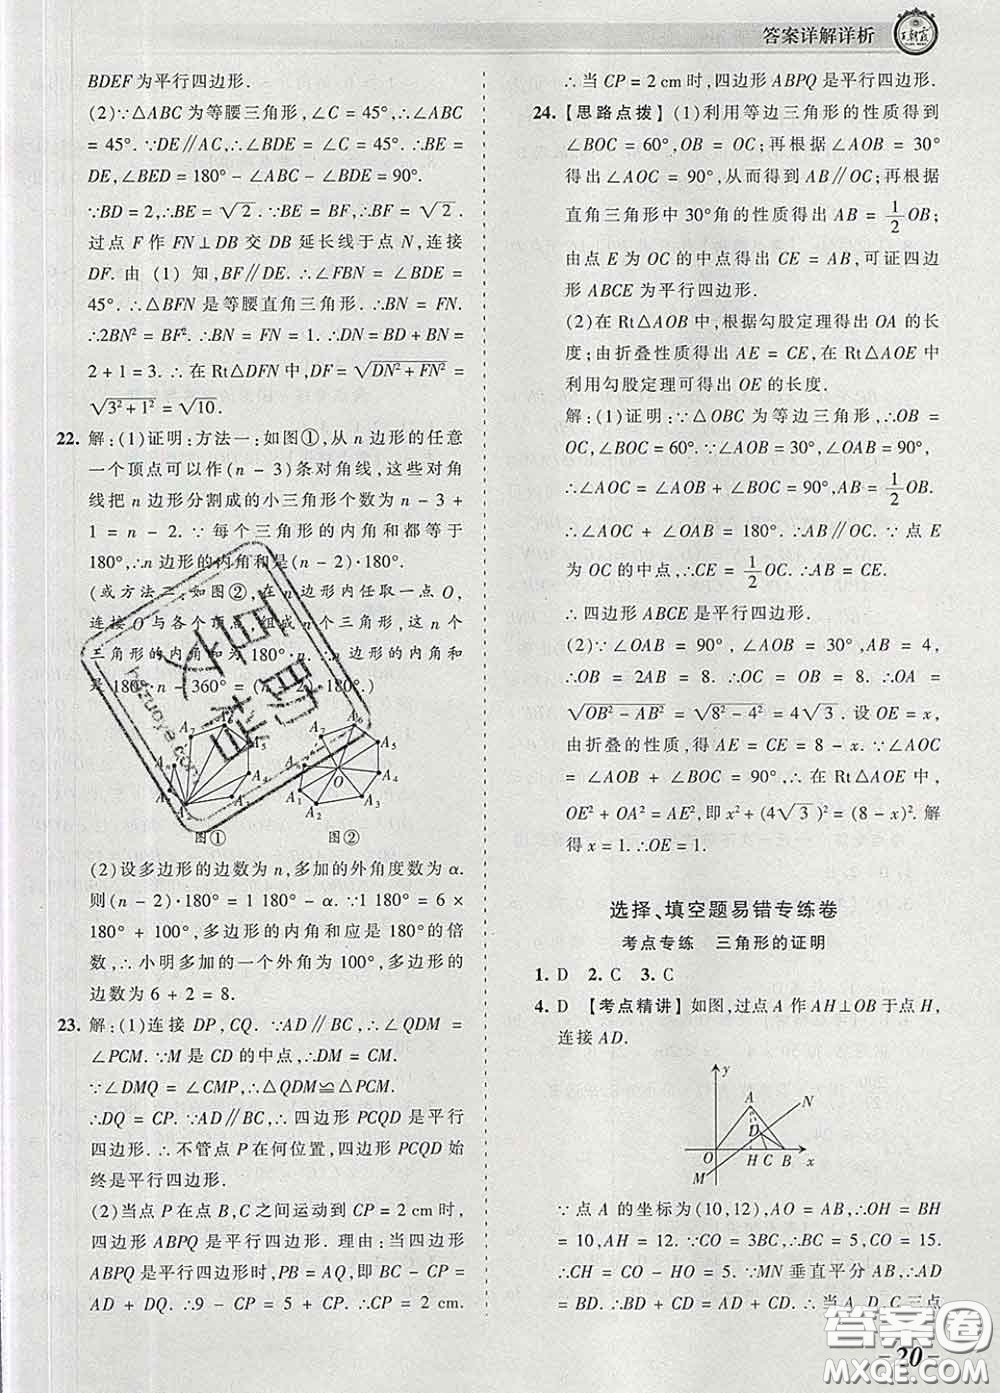 答案详解详析
王朝霞
BDEF 为平行四边形.
(2)∵△ABC 为等腰三角形,∠C = 45°,∴∠ABC
= 45°. ∵DE∥AC,∴∠BDE = ∠C = 45°. ∴BE =
DE,∠BED = 180° - ∠ABC - ∠BDE = 90°.
∵BD = 2,∴BE = √2. ∵BE = BF,∴BF = √2.
过点 F 作 FN⊥DB 交 DB 延长线于点 N,连接
DF. 由 (1) 知,BF∥DE. ∴∠FBN = ∠BDE =
45°. ∴△BFN 是等腰直角三角形. ∴BN = FN.
∴2BN² = BF². ∴BN = FN = 1. ∴DN = BD + BN =
2 + 1 = 3. ∴在 Rt△DFN 中,DF = √(DN² + FN²) =
√(3² + 1²) = √10.
22. 解:(1)证明:方法一:如图①,从 n 边形的任意
一个顶点可以作(n - 3)条对角线,这些对角
线把 n 边形分割成的小三角形个数为 n - 3 +
1 = n - 2. ∵每个三角形的内角和都等于
180°,∴n 边形的内角和是(n - 2)·180°.
(或方法二:如图②,在 n 边形内任取一点 O,
连接 O 与各个顶点,组成 n 个三角形,这 n 个
三角形的内角和为 180°·n. ∴n 边形的内角和
是 180°·n - 360° = (n - 2)·180°.)
图① 图②
(2)设多边形的边数为 n,多加的外角度数为 α.
则(n - 2)·180° = 1180° - α. ∵1180° = 6 ×
180° + 100°,多边形的内角和应是 180°的倍
数,∴小明多加的一个外角为 100°,∴多边形
的边数为 6 + 2 = 8.
23. 解:(1)连接 DP,CQ. ∵AD∥BC,∴∠QDM =
∠PCM. ∵M 是 CD 的中点,∴DM = CM.
∵∠DMQ = ∠CMP,∴△QDM≌△PCM.
∴DQ = CP. ∵AD∥BC,∴四边形 PCQD 是平行
四边形. ∴不管点 P 在何位置,四边形 PCQD 始
终是平行四边形.
(2)当点 P 在点 B,C 之间运动到 CP = 2 cm 时,四
边形 ABPQ 是平行四边形. 理由:当四边形
ABPQ 是平行四边形时,PB = AQ,即 BC - CP =
AD + DQ. ∴9 - CP = 5 + CP. ∴CP = 2 cm.
∴当 CP = 2 cm 时,四边形 ABPQ 是平行四边形.
24. 【思路点拨】(1)利用等边三角形的性质得到
∠BOC = 60°,OB = OC;再根据∠AOB = 30°
得出∠AOC = 90°,从而得到 AB∥OC;再根据
直角三角形中 30°角的性质得出 AB = 1/2 OB;
由点 E 为 OC 的中点得出 CE = AB,可证四边
形 ABCE 为平行四边形.
(2)在 Rt△AOB 中,根据勾股定理得出 OA 的长
度;由折叠性质得出 AE = CE,在 Rt△AOE 中
利用勾股定理可得出 OE 的长度.
解:(1)证明:∵△OBC 为等边三角形,∴OB =
OC,∠BOC = 60°. ∵∠AOB = 30°,∠OAB = 90°,
∴∠AOC = ∠AOB + ∠BOC = 90°,AB = 1/2 OB.
∴∠AOC + ∠OAB = 180°. ∴AB∥OC. ∵点 E
为 OC 的中点,∴CE = 1/2 OC. ∴AB = CE.
∴四边形 ABCE 是平行四边形.
(2)∵∠OAB = 90°,∠AOB = 30°,AB = 4,
∴OB = 2AB = 8. ∴OC = OB = 8. ∴OA =
√(OB² - AB²) = √(8² - 4²) = 4√3. 设 OE = x,
由折叠的性质,得 AE = CE = 8 - x. ∵∠AOC
= ∠AOB + ∠BOC = 90°,∴在 Rt△AOE 中,
OE² + OA² = AE²,即 x² + (4√3)² = (8 - x)². 解
得 x = 1. ∴OE = 1.
选择、填空题易错专练卷
考点专练 三角形的证明
1. D 2. C 3. C
4. D 【考点精讲】如图,过点 A 作 AH⊥OB 于点 H,
连接 AD.
y
A N
D
O H C B x
M
∵点 A 的坐标为(10,12),AO = AB,∴OH = BH
= 10,AH = 12. ∵CO = 3BC,∴BC = 5,CO = 15.
∴CH = CO - HO = 5. ∵MN 垂直平分 AB,∴AD
= BD. ∴BD + CD = AD + CD. ∴当 A,D,C 三点
- 20 -
答案圈
MXQE.COM